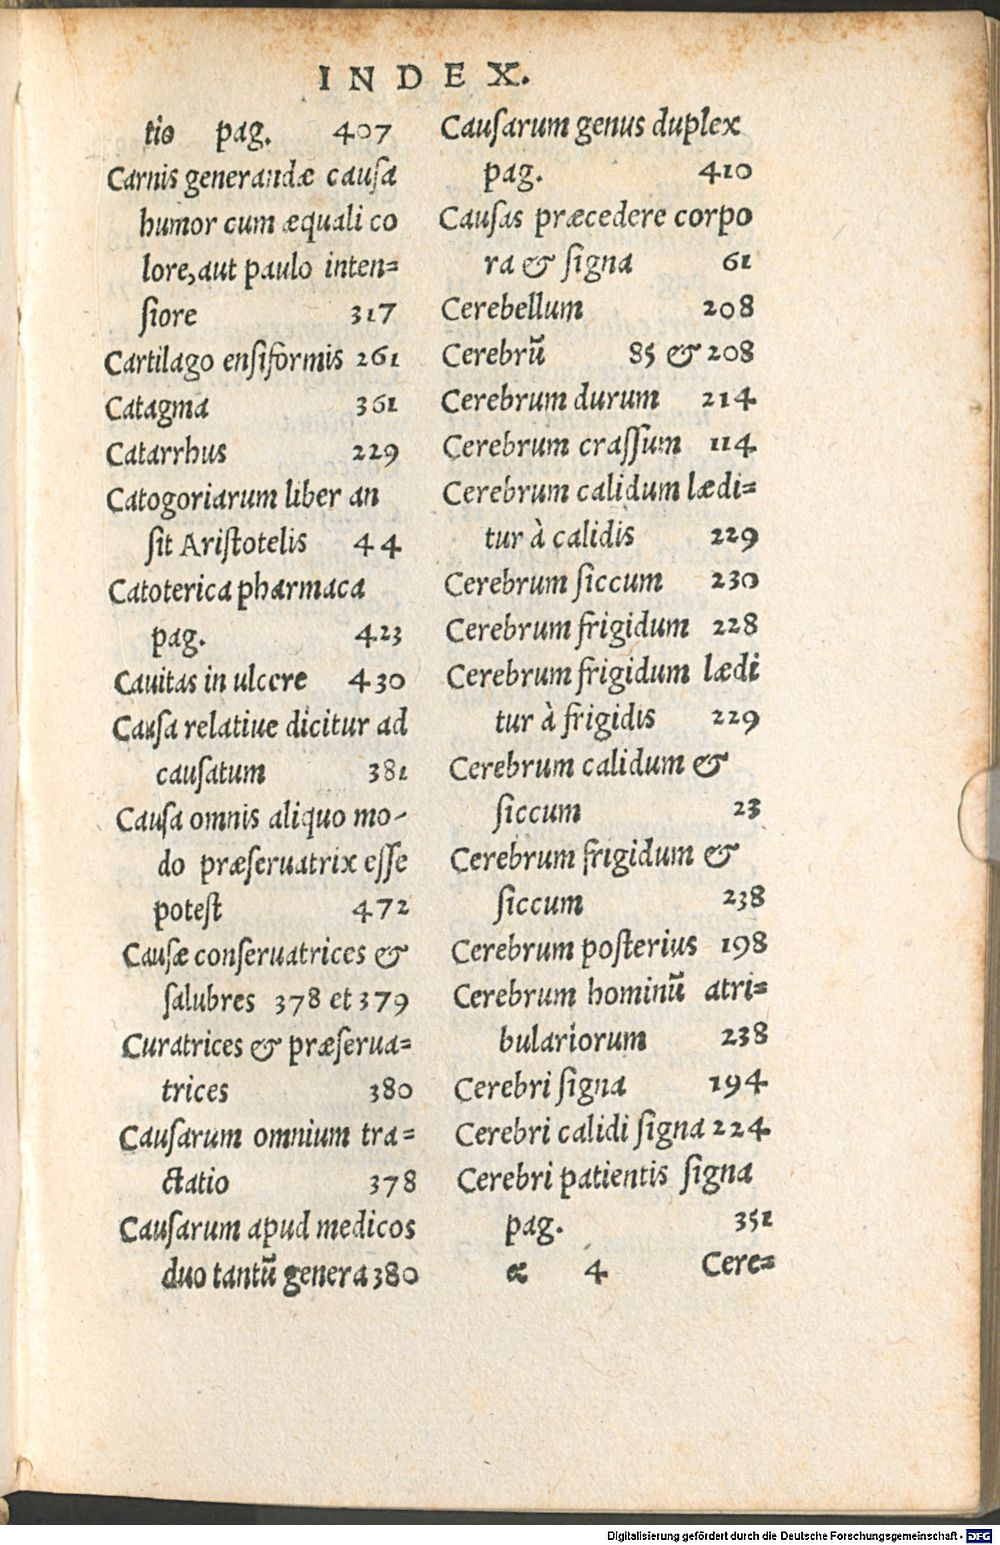 INDEX.
tio pag. 407
Carnis generandæ causa
humor cum æquali co
lore, aut paulo inten=
siore 317
Cartilago ensiformis 261
Catagma 361
Catarrhus 229
Catogoriarum liber an
sit Aristotelis 44
Catoterica pharmaca
pag. 423
Cauitas in ulcere 430
Causa relatiue dicitur ad
causatum 381
Causa omnis aliquo mo-
do præseruatrix esse
potest 472
Causæ conseruatrices &
salubres 378 et 379
Curatrices & præserua=
trices 380
Causarum omnium tra=
ctatio 378
Causarum apud medicos
duo tantũ genera 380
Causarum genus duplex
pag. 410
Causas præcedere corpo
ra & signa 61
Cerebellum 208
Cerebrũ 85 & 208
Cerebrum durum 214
Cerebrum crassum 114
Cerebrum calidum lædi=
tur à calidis 229
Cerebrum siccum 230
Cerebrum frigidum 228
Cerebrum frigidum lædi
tur à frigidis 229
Cerebrum calidum &
siccum 23
Cerebrum frigidum &
siccum 238
Cerebrum posterius 198
Cerebrum hominũ atri=
bulariorum 238
Cerebri signa 194
Cerebri calidi signa 224
Cerebri patientis signa
pag. 351
α 4 Cere=
Digitalisierung gefördert durch die Deutsche Forschungsgemeinschaft - DFG